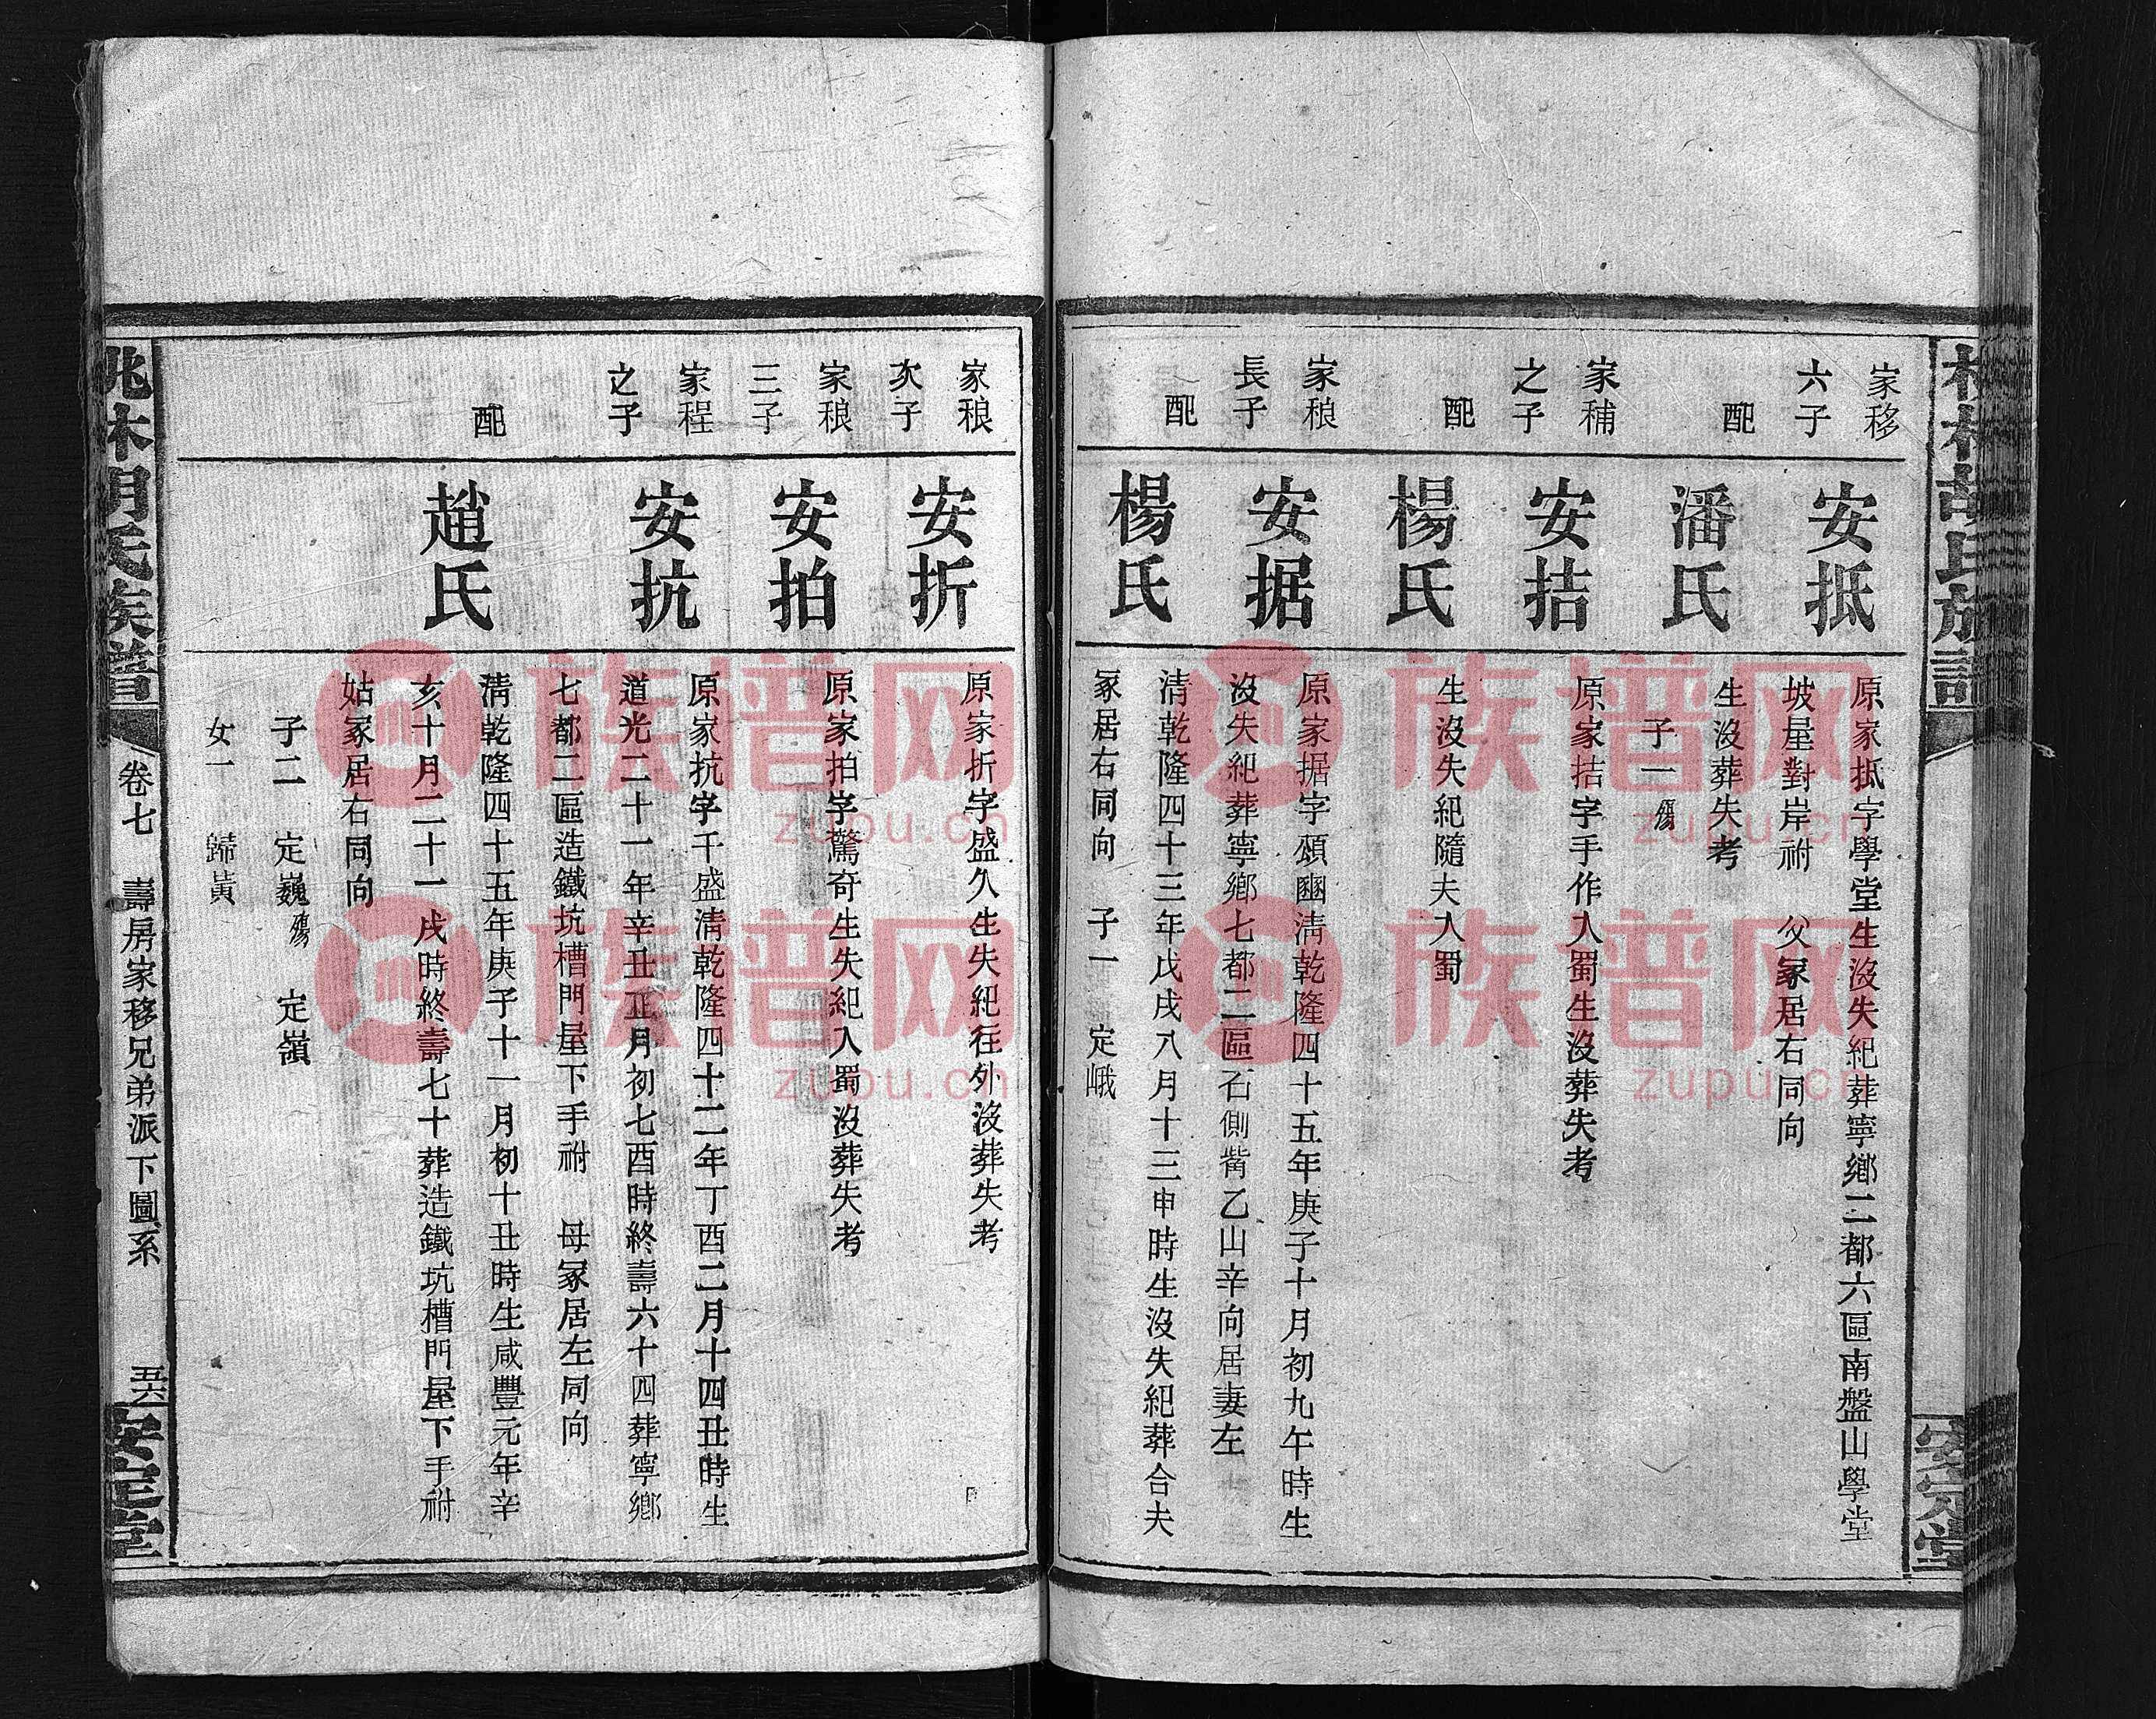 家移
六子
安抵
原家抵字學堂生沒失紀葬寧鄉二都六區南盤山學堂
坡屋對岸祔　父冢居右同向
配
潘氏
生沒葬失考
子一 殤
家補
之子
安拮
原家拮字手作入蜀生沒葬失考
配
楊氏
生沒失紀隨夫入蜀
家稂
長子
安据
原家据字頌豳清乾隆四十五年庚子十月初九午時生
沒失紀葬寧鄉七都二區石側觜乙山辛向居妻左
配
楊氏
清乾隆四十三年戊戌八月十三申時生沒失紀葬合夫
冢居右同向　子一　定峨
安定堂
家稂
次子
安折
原家折字盛久生失紀往外沒葬失考
家稂
三子
安拍
原家拍字驚奇生失紀入蜀沒葬失考
家程
之子
安抗
原家抗字千盛清乾隆四十二年丁酉二月十四丑時生
道光二十一年辛丑正月初七酉時終壽六十四葬寧鄉
七都二區造鐵坑槽門屋下手祔　母冢居左同向
配
趙氏
清乾隆四十五年庚子十一月初十丑時生咸豐元年辛
亥十月二十一戌時終壽七十葬造鐵坑槽門屋下手祔
姑冢居右同向
子二　定巍 殤　定嶺
女一　歸黃
氏族譜
卷七　壽房家移兄弟派下圖系
五六
安定堂
族谱网
zupu.cn
族谱网
zupu.cn
族谱网
zupu.cn
族谱网
zupu.cn